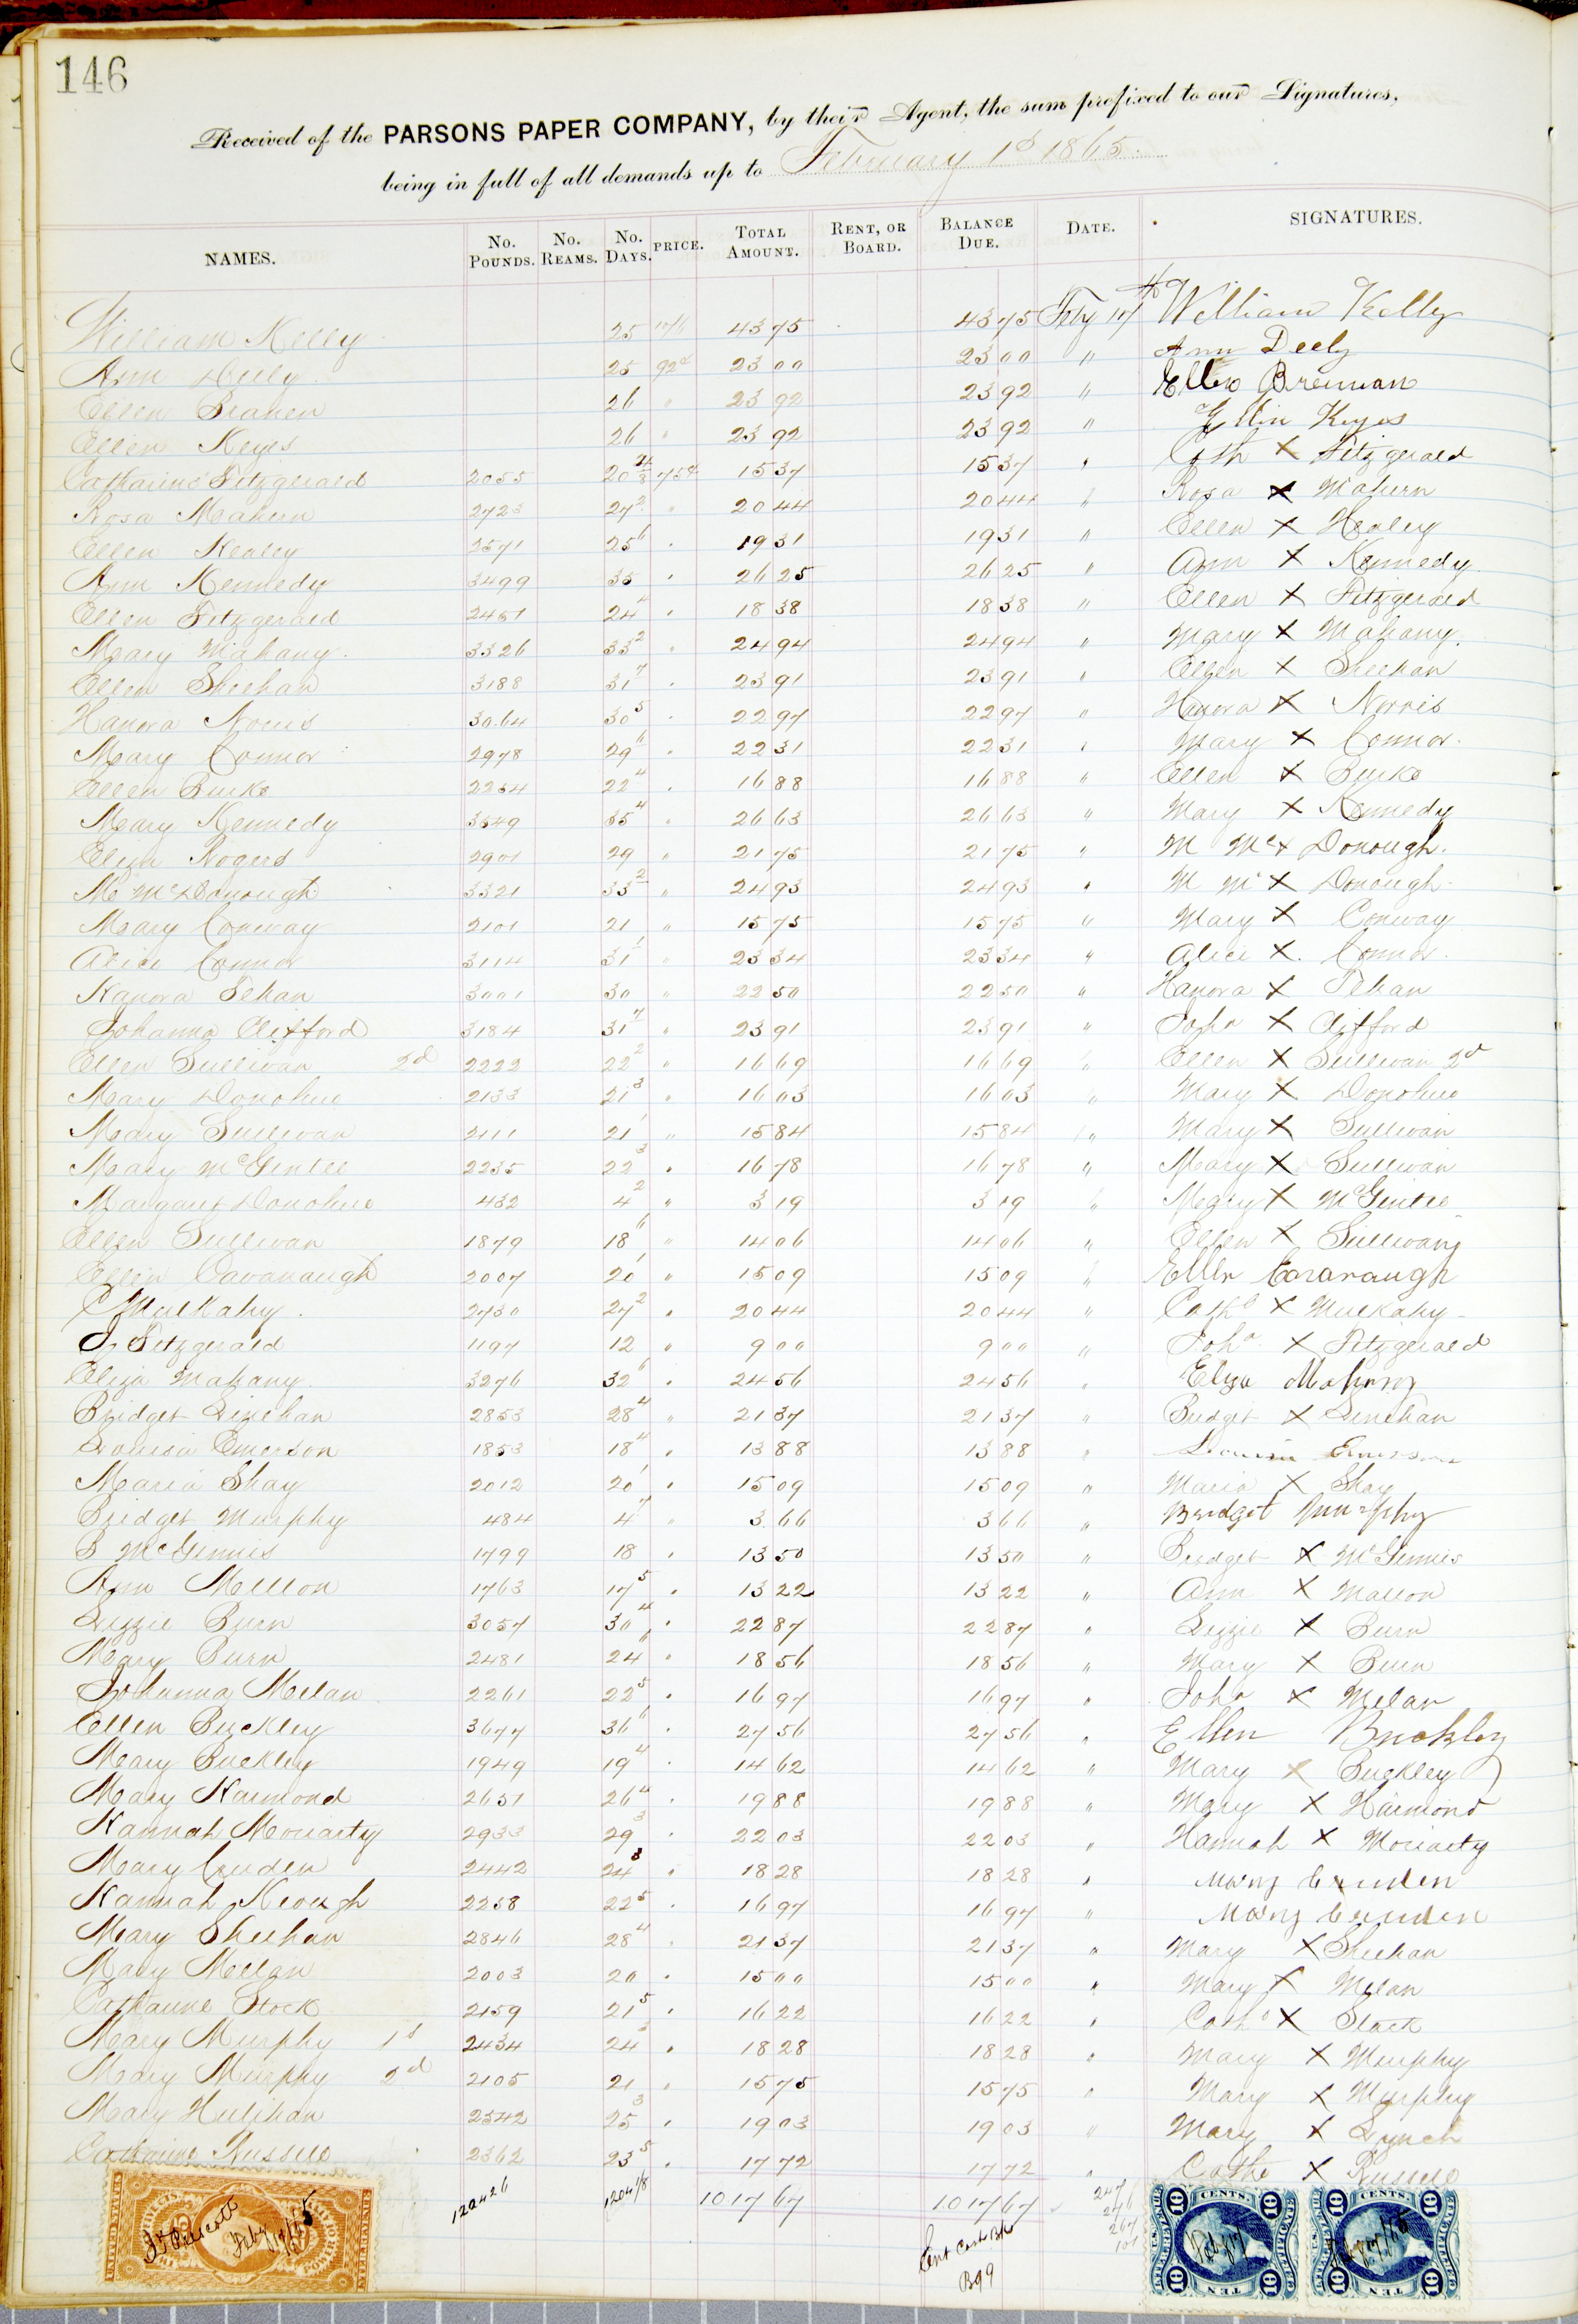 146
Received of the PARSONS PAPER COMPANY, by their Agent, the sum prefixed to our Signatures,
being in full of all demands up to February 1st 1865.
NAMES. No. Pounds. No. Reams. No. Days. PRICE. Total Amount. Rent, or Board. Balance Due. Date. SIGNATURES.
William Kelly 25 43 75 43 75 Feby 17 William Kelly
Ann Deely 25 92c 23 00 23 00 " Ann Deely
Ellen Branen 26 " 23 92 23 92 " Ellen Brennan
Ellen Keyes 26 " 23 92 23 92 " Ellin Keyes
Catharine Fitzgerald 2055 20 4/8 75c 15 37 15 37 " Cath X Fitzgerald
Rosa Mahern 2723 27 2 " 20 44 20 44 " Rosa X Mahern
Ellen Healey 2571 25 6 " 19 31 19 31 " Ellen X Healey
Ann Kennedy 3499 35 " 26 25 26 25 " Ann X Kennedy
Ellen Fitzgerald 2451 24 4 " 18 38 18 38 " Ellen X Fitzgerald
Mary Mahany 3326 33 2 " 24 94 24 94 " Mary X Mahany.
Ellen Sheehan 3188 31 7 " 23 91 23 91 " Ellen X Sheehan
Hanora Norris 3064 30 5 " 22 97 22 97 " Hanora X Norris
Mary Connor 2978 29 6 " 22 31 22 31 " Mary X Connor.
Ellen Burke 2254 22 4 " 16 88 16 88 " Ellen X Burke
Mary Kennedy 3549 35 4 " 26 63 26 63 " Mary X Kennedy
Eliza Rogers 2901 29 " 21 75 21 75 " M Mc X Donough.
M McDonough 3321 33 2 " 24 93 24 93 " M Mc X Donough
Mary Conway 2101 21 " 15 75 15 75 " Mary X Conway
Alice Connor 3114 31 1 " 23 34 23 34 " Alice X. Connor.
Hanora Tehan 3001 30 " 22 50 22 50 " Hanora X Tehan
Johanna Clifford 3184 31 7 " 23 91 23 91 " Joha X Clifford
Ellen Sullivan 2d 2222 22 2 " 16 69 16 69 " Ellen X Sullivan 2d
Mary Donohue 2133 21 3 " 16 03 16 03 " Mary X Donohue
Mary Sullivan 2111 21 1 " 15 84 15 84 " Mary X Sullivan
Mary McGintee 2235 22 3 " 16 78 16 78 " Mary X Sullivan
Margaret Donohue 432 4 2 " 3 19 3 19 " Mary X McGintee
Ellen Sullivan 1879 18 6 " 14 06 14 06 " Ellen X Sullivan
Ellen Cavanaugh 2007 20 1 " 15 09 15 09 " Ellen Cavanaugh
C Mulkahy. 2730 27 2 " 20 44 20 44 " Cathe X Mulkahy
J. Fitzgerald 1197 12 " 9 00 9 00 " Joha X Fitzgerald
Eliza Mahany. 3276 32 6 " 24 56 24 56 " Eliza Mahany
Bridget Linehan 2853 28 4 " 21 37 21 37 " Bridget X Linehan
Louisa Emerson 1853 18 4 " 13 88 13 88 " Louisa Emerson
Maria Shay 2012 20 1 " 15 09 15 09 " Maria X Shay
Bridget Murphy 484 4 7 " 3 66 3 66 " Bridget Murphy
B McGinnis 1799 18 " 13 50 13 50 " Bridget X McGinnis
Ann Mellon 1763 17 5 " 13 22 13 22 " Ann X Mallon
Lizzie Burn 3057 30 4 " 22 87 22 87 " Lizzie X Burn
Mary Burn 2481 24 6 " 18 56 18 56 " Mary X Burn
Johanna Melan 2261 22 5 " 16 97 16 97 " Joha X Melan
Ellen Buckley 3677 36 6 " 27 56 27 56 " Ellen Buckley
Mary Buckley 1949 19 4 " 14 62 14 62 " Mary X Buckley
Mary Harmond 2651 26 4 " 19 88 19 88 " Mary X Harmond
Hannah Moriarty 2933 29 3 " 22 03 22 03 " Hannah X Moriarty
Mary Cruden 2442 24 3 " 18 28 18 28 " Mary Cruden
Hannah Keough 2258 22 5 " 16 97 16 97 " Mary Cruden
Mary Sheehan 2846 28 4 " 21 37 21 37 " Mary X Sheehan
Mary Mellan 2003 20 " 15 00 15 00 " Mary X Melan
Catharine Stock 2159 21 5 " 16 22 16 22 " Cathe X Stack
Mary Murphy 1st 2434 24 3 " 18 28 18 28 " Mary X Murphy
Mary Murphy 2d 2105 21 " 15 75 15 75 " Mary X Murphy
Mary Hulihan 2542 25 3 " 19 03 19 03 " Mary X Lynch
Catharine Russell 2362 23 5 " 17 72 17 72 " Cathe X Russell
120426 1204 1/8 1017 67 1017 67
247
276
267
Ent Cash Bk
Pg 9
UNITED STATES
INTER. REVENUE
Feby 17/65
10 CENTS. 10
U.S. INTER. REVENUE
10 TEN 10
Feby 17
10 CENTS. 10
10 TEN 10
Feby 17/65